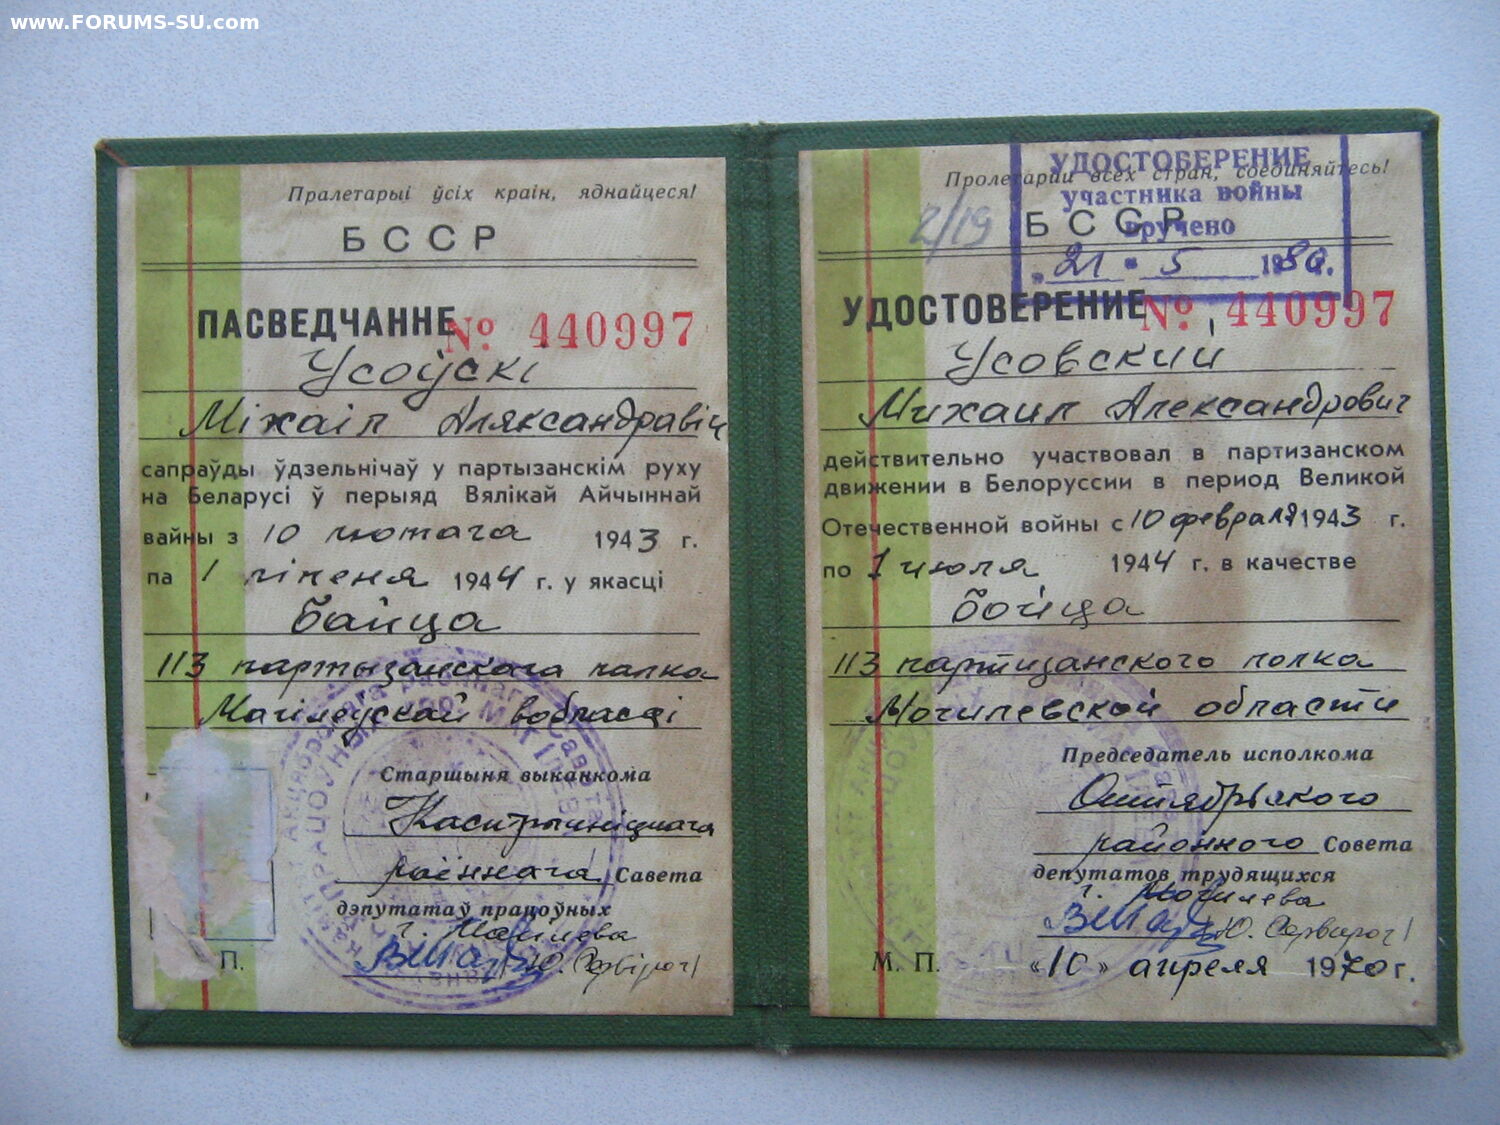 www.FORUMS-SU.com
Пралетарыі ўсіх краін, яднайцеся!
БССР
ПАСВЕДЧАННЕ № 440997
Усоўскі
Міхаіл Аляксандравіч
сапраўды ўдзельнічаў у партызанскім руху
на Беларусі ў перыяд Вялікай Айчыннай
вайны з 10 лютага 1943 г.
па 1 ліпеня 1944 г. у якасці
байца
113 партызанскага палка
Магілеўскай вобласці
Старшыня выканкома
Кастрычніцкага
раённага Савета
дэпутатаў працоўных
г. Магілева
П.
УДОСТОВЕРЕНИЕ
участника войны
вручено
"21" 5 1980г.
2/19
Пролетарии всех стран, соединяйтесь!
БССР
УДОСТОВЕРЕНИЕ № 440997
Усовский
Михаил Александрович
действительно участвовал в партизанском
движении в Белоруссии в период Великой
Отечественной войны с 10 февраля 1943 г.
по 1 июля 1944 г. в качестве
бойца
113 партизанского полка
Могилевской области
Председатель исполкома
Октябрьского
районного Совета
депутатов трудящихся
г. Могилева
М. П. «10» апреля 1970 г.